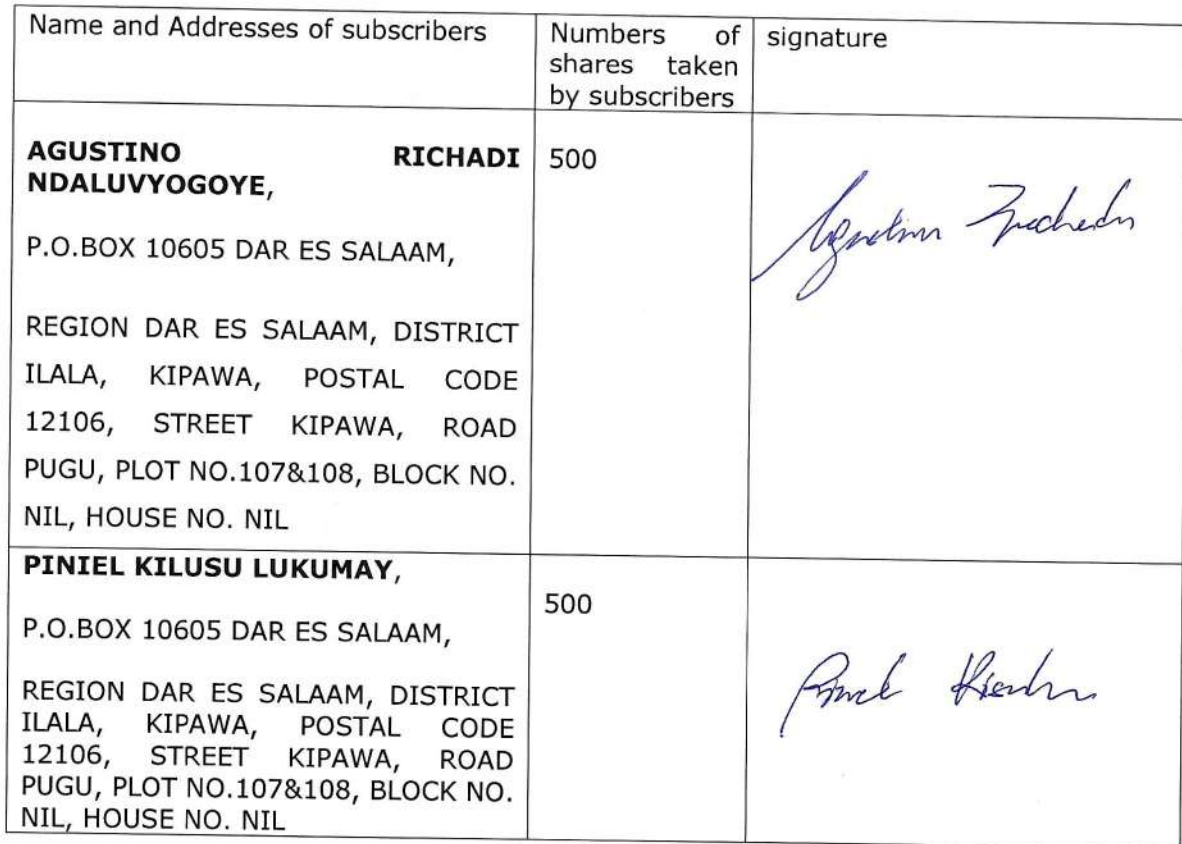 Name and Addresses of subscribers
Numbers of
shares taken
by subscribers
signature
AGUSTINO RICHADI
NDALUVYOGOYE,
P.O.BOX 10605 DAR ES SALAAM,
REGION DAR ES SALAAM, DISTRICT
ILALA, KIPAWA, POSTAL CODE
12106, STREET KIPAWA, ROAD
PUGU, PLOT NO.107&108, BLOCK NO.
NIL, HOUSE NO. NIL
500
PINIEL KILUSU LUKUMAY,
P.O.BOX 10605 DAR ES SALAAM,
REGION DAR ES SALAAM, DISTRICT
ILALA, KIPAWA, POSTAL CODE
12106, STREET KIPAWA, ROAD
PUGU, PLOT NO.107&108, BLOCK NO.
NIL, HOUSE NO. NIL
500